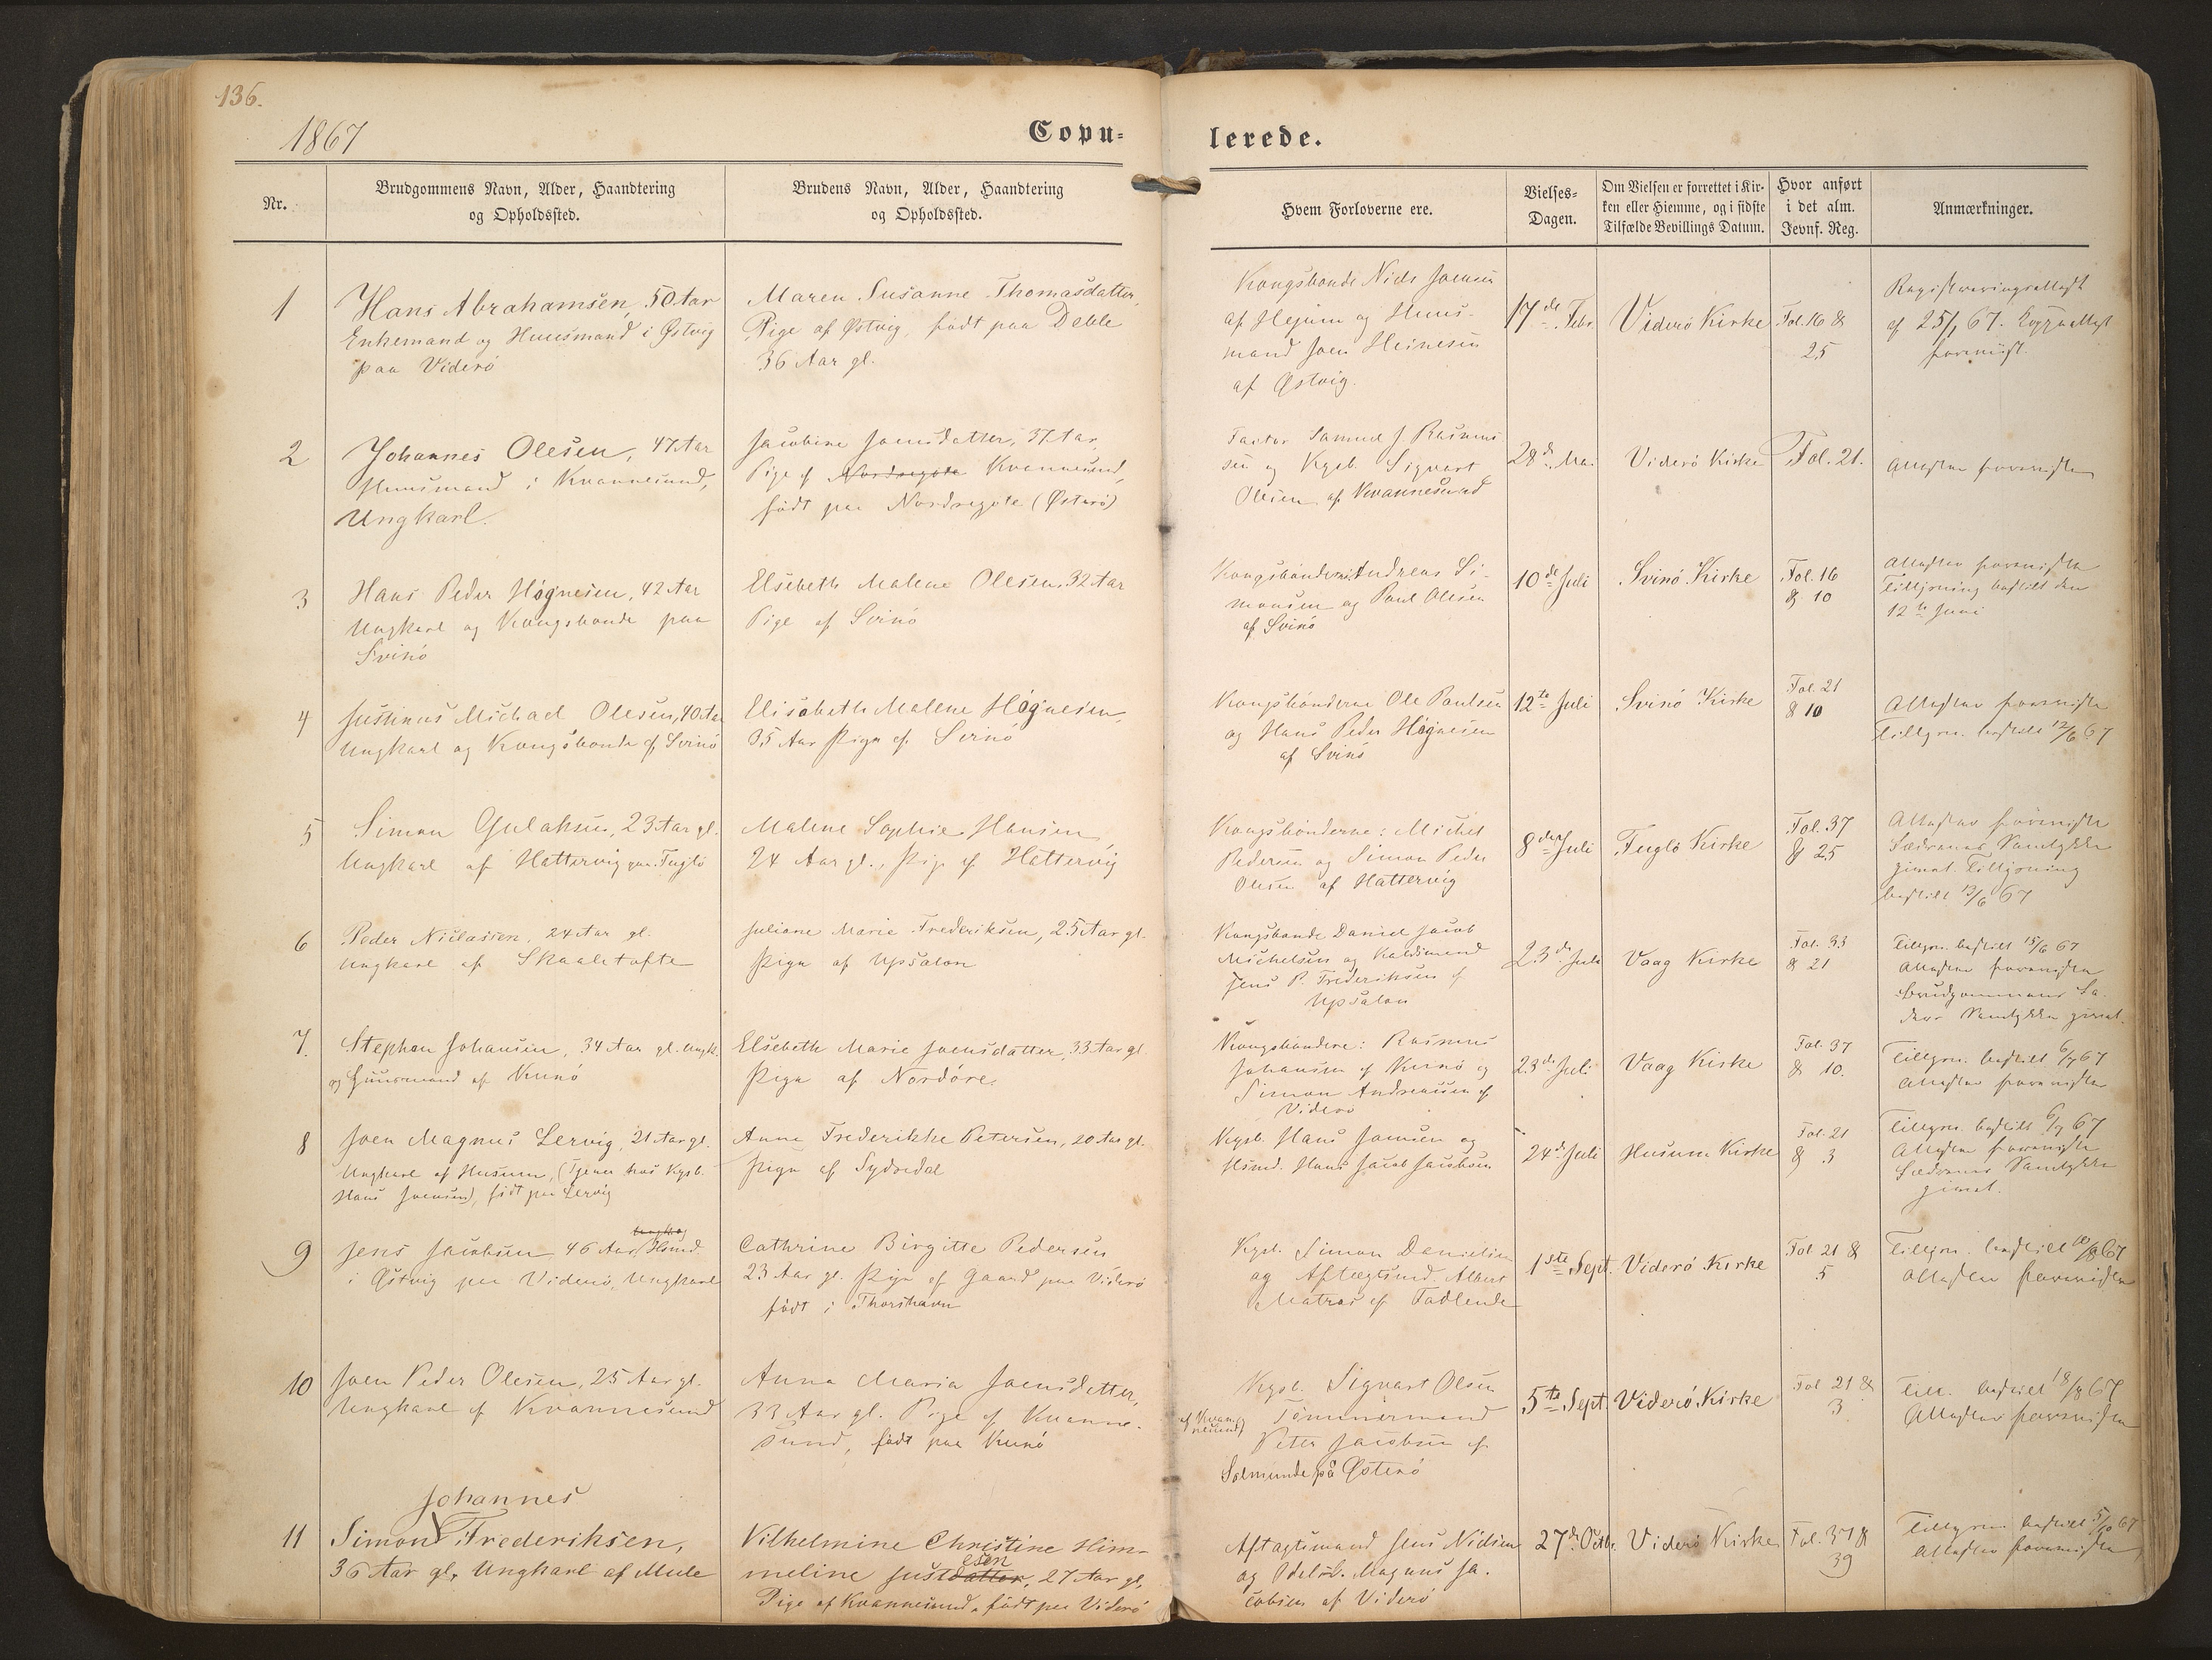 136.
1867
Copu-
lerede.
Nr.
Brudgommens Navn, Alder, Haandtering
og Opholdssted.
Brudens Navn, Alder, Haandtering
og Opholdssted.
Hvem Forloverne ere.
Vielses-
Dagen.
Om Vielsen er forrettet i Kir-
ken eller Hiemme, og i sidste
Tilfælde Bevillings Datum.
Hvor anført
i det alm.
Jevnf. Reg.
Anmærkninger.
1
Hans Abrahamsen, 50 Aar
Enkemand og Huusmand i Østvig
paa Viderö
Maren Susanne Thomasdatter,
Pige af Østvig, födt paa Deble
36 Aar gl.
Kongsbonde Niels Joensen
af Hejum og Huus-
mand Joen Heinesen
af Østvig.
17de Febr.
Viderö Kirke
Fol. 16 &
25
Registreringsattest
af 25/1 67.
forevist.
2
Johannes Olesen, 47 Aar
Huusmand i Kvannesund,
Ungkarl.
Jacobine Joensdatter, 37 Aar,
Pige af Nordregöte Kvannesund,
födt paa Nordregöte (Österö)
Factor Samuel J. Rasmus
sen og Kgsb. Sigvart
Olesen af Kvannesund
28de Mai
Viderö Kirke
Fol. 21.
Attester foreviste
3
Hans Peder Högnesen, 42 Aar
Ungkarl og Kongsbonde paa
Svinö
Elsebeth Malene Olesen, 32 Aar
Pige af Svinö
Kongsbönderne Andreas Si-
monsen og Poul Olesen
af Svinö
10de Juli
Svinö Kirke
Fol. 16
& 10
Attester foreviste
Tillysning bestilt den
12te Juni
4
Justinus Michael Olesen, 40 Aar
Ungkarl og Kongsbonde af Svinö
Elisabeth Malene Högnesen,
35 Aar Pige af Svinö
Kongsbönderne Ole Poulsen
og Hans Peder Högnesen
af Svinö
12te Juli
Svinö Kirke
Fol. 21
& 10
Attester foreviste
Tillysn. bestilt 12/6 67
5
Simon Gulaksen, 23 Aar gl.
Ungkarl af Hattervig paa Fuglö
Malene Sophie Hansen
24 Aar gl., Pige af Hattervig
Kongsbönderne: Michel
Pedersen og Simon Peder
Olesen af Hattervig
8de Juli
Fuglö Kirke
Fol. 37
& 25
Attester foreviste
Fædrenes Samtykke
givet. Tillysning
bestilt 13/6 67
6
Peder Niclasen, 24 Aar gl.
Ungkarl af Skaaletofte
Juliane Marie Frederiksen, 25 Aar gl.
Pige af Upsalon
Kongsbonde Daniel Jacob
Michelsen og
Jens P. Frederiksen af
Upsalon
23de Juli
Vaag Kirke
Fol. 33
& 21
Tillysn. bestilt 15/6 67
Attester foreviste
Brudgommens Fa-
ders Samtykke givet.
7.
Stephan Johansen, 34 Aar gl. Ungk.
og Huusmand af Kunö
Elsebeth Marie Joensdatter, 33 Aar gl.
Pige af Nordöre.
Kongsbönderne: Rasmus
Johansen af Kunö og
Simon Andreasen af
Viderö
23de Juli
Vaag Kirke
Fol. 37
& 10.
Tillysn. bestilt 6/7 67
Attester foreviste
8
Joen Magnus Lervig, 21 Aar gl.
Ungkarl af Husum, (Tjener hos Kgsb.
Hans Joensen), födt paa Lervig
Anna Frederikke Petersen, 20 Aar gl.
Pige af Sydredal
Kgsb. Hans Joensen og
Hsmd. Hans Jacob Jacobsen
24de Juli
Husum Kirke
Fol. 21
& 3
Tillysn. bestilt 6/7 67
Attester foreviste
Fædrenes Samtykke
givet.
9
Jens Jacobsen 46 Aar, Hsmd
i Østvig paa Viderö, Ungkarl
Cathrine Birgitte Pedersen
23 Aar gl. Pige af Gaard paa Viderö
födt i Thorshavn
Kgsb. Simon Danielsen
og Aftægtsmd. Albert
Matras af Tadlende
1ste Sept.
Viderö Kirke
Fol. 21 &
5
Tillysn. bestilt 10/8 67
Attester foreviste
10
Joen Peder Olesen, 25 Aar gl.
Ungkarl af Kvannesund
Anna Maria Joensdatter,
33 Aar gl. Pige af Kvanne-
sund, födt paa Kunö
Kgsb. Sigvart Olsen
af Kvan-
nesund
og
Tömmermand
Peter Jacobsen af
Solmunde på Österö
5te Sept.
Viderö Kirke
Fol 21 &
3
Till. bestilt 18/8 67
Attester foreviste
11
Johannes
Simon Frederiksen,
36 Aar gl., Ungkarl af Mule
Vilhelmine Christine Him-
meline Justdatter esen, 27 Aar gl,
Pige af Kvannesund, födt paa Viderö
Aftægtsmand Jens Nielsen
og Odelsb. Magnus Ja-
cobsen af Viderö
27de Octbr.
Viderö Kirke
Fol. 37 &
39
Tillysn. bestilt 5/10 67
Attester foreviste